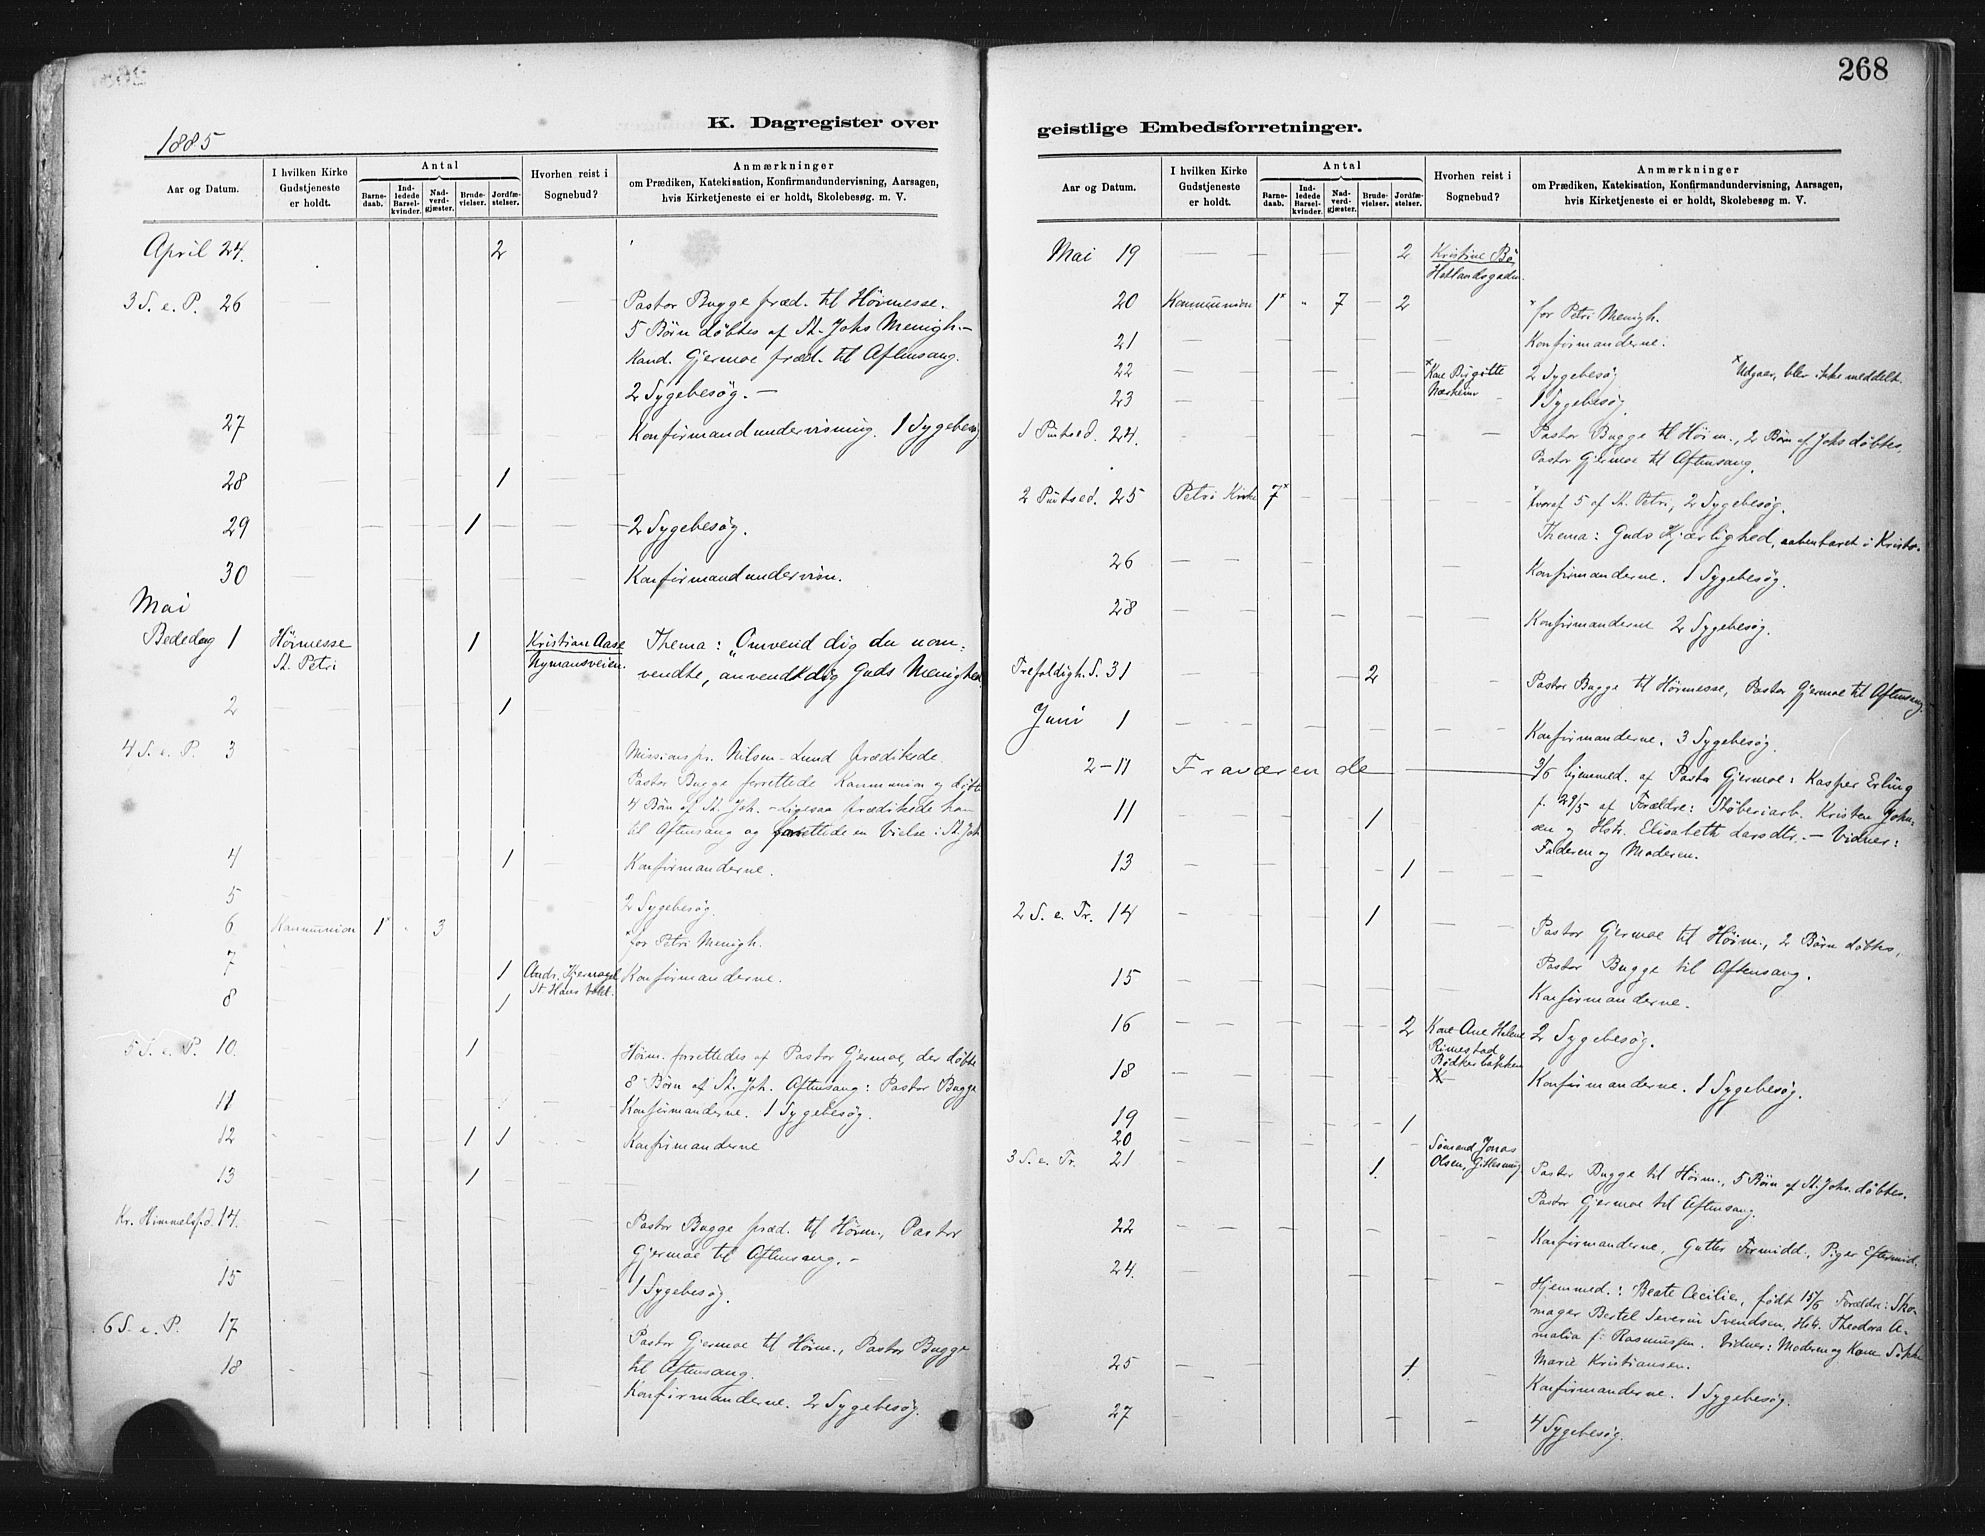 268
K. Dagregister over
geistlige Embedsforretninger.
1885
Aar og Datum.
I hvilken Kirke Gudstjeneste er holdt.
Antal
Barne-daab.
Ind-ledede Barsel-kvinder.
Nad-verd-gjæster.
Brude-vielser.
Jordfæ-stelser.
Hvorhen reist i Sognebud?
Anmærkninger
om Prædiken, Katekisation, Konfirmandundervisning, Aarsagen,
hvis Kirketjeneste ei er holdt, Skolebesøg. m. V.
April 24. 2
3 S. e. P. 26 Pastor Bugge præd. til Høimesse.
5 Børn døbtes af St. Johs Menigh.-
Kand. Gjermoe præd. til Aftensang.
2 Sygebesøg. -
27 Konfirmandundervisning. 1 Sygebesøg
28 1
29 1 2 Sygebesøg.
30 Konfirmandundervisn.
Mai
Bededag 1 Høimesse 1 Kristian Aase Thema: "Omvend dig du uom-
St. Petri Nymansveien. vendte, anvendt dig Guds Menighed
2 1
4 S. e. P. 3 Missionspr. Nilsen-Lund prædikede.
Pastor Bugge forrettede Kommunion og døbte
4 Børn af St. Joh. - Ligesaa prædikede han
til Aftensang og forrettede en Vielse i St. Joh
4 1 Konfirmanderne.
5 2 Sygebesøg.
6 Kommunion 1* " 3 *for Petri Menigh.
7 1 Ands. Kjernagel Konfirmanderne.
St. Hans Vold.
8 1
5 S. e. P. 10. 1 Høim. forrettedes af Pastor Gjermoe, der døbte
8 Børn af St. Joh. Aftensang: Pastor Bugge
11 Konfirmanderne. 1 Sygebesøg.
12 1 1 Konfirmanderne
13 1
Kr. Himmelsf.d. 14. Pastor Bugge præd. til Høim., Pastor
Gjermoe til Aftensang. -
15 1 Sygebesøg.
6 S. e. P. 17 Pastor Gjermoe til Høim., Pastor Bugge
til Aftensang.
18 Konfirmanderne. 2 Sygebesøg.
Aar og Datum.
I hvilken Kirke Gudstjeneste er holdt.
Antal
Barne-daab.
Ind-ledede Barsel-kvinder.
Nad-verd-gjæster.
Brude-vielser.
Jordfæ-stelser.
Hvorhen reist i Sognebud?
Anmærkninger
om Prædiken, Katekisation, Konfirmandundervisning, Aarsagen,
hvis Kirketjeneste ei er holdt, Skolebesøg m. V.
Mai 19 2 Kristine Bø
Hetlandsgaden.
20 Kommunion 1* " 7 - 2 *for Petri Menigh.
21 Konfirmanderne.
22 *Kone Birgitte 2 Sygebesøg *Udgaar, blev ikke meddelt.
23 Nærheim 1 Sygebesøg
1 Pintsed. 24. Pastor Bugge til Høim., 2 Børn af Johs døbtes,
Pastor Gjermoe til Aftensang.
2 Pintsed. 25 Petri Kirke 7* *hvoraf 5 af St. Petri, 2 Sygebesøg.
Thema: Guds Kjærlighed, aabenbaret i Kristo.
26 Konfirmanderne. 1 Sygebesøg.
28 Konfirmanderne 2 Sygebesøg.
Trefoldigh. S. 31 2 Pastor Bugge til Høimesse, Pastor Gjermoe til Aftensang.
Juni 1 Konfirmanderne. 3 Sygebesøg.
2-11 Fraværende 9/6 hjemmed. af Pastor Gjermoe: Kasper Erling
11 1 f. 29/5 af Forældre: Støberiarb. Kristen John-
sen og Hstr. Elisabeth Larsdtr. - Vidner:
13 1 Faderen og Moderen.
2 S. e. Tr. 14 1 Pastor Gjermoe til Høim., 2 Børn døbtes,
Pastor Bugge til Aftensang.
15 Konfirmanderne.
16 2 Kone Ane Helene 2 Sygebesøg.
Rimestad
Bødkerbakken
18 Konfirmanderne. 1 Sygebesøg.
19 1
20 Sømand Jonas
3 S. e. Tr. 21 1. Olsen, Pastor Bugge til Høim., 5 Børn af St. Johs. døbtes.
Pastor Gjermoe til Aftensang.
22 Konfirmanderne, Gutter Formidd, Piger Eftermid.
24. Hjemmed.: Beate Cecilie, født 15/6 Forældre: Sko-
mager Bertel Severin Svendsen, Hstr. Theodora A-
malia f. Rasmussen. Vidner: Moderen og Kone
25 1. Marie Kristiansen.
Konfirmanderne. 1 Sygebesøg.
27 4 Sygebesøg.